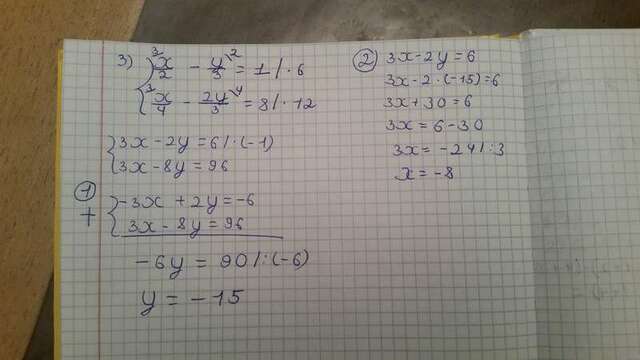 3) { ³x/2 - y/3 ² = 1 / · 6
{ ³x/4 - 2y/3 ⁴ = 8 / · 12
{ 3x - 2y = 6 / · (-1)
{ 3x - 8y = 96
① { -3x + 2y = -6
+ { 3x - 8y = 96
-6y = 90 / : (-6)
y = -15
② 3x - 2y = 6
3x - 2 · (-15) = 6
3x + 30 = 6
3x = 6 - 30
3x = -24 / : 3
x = -8